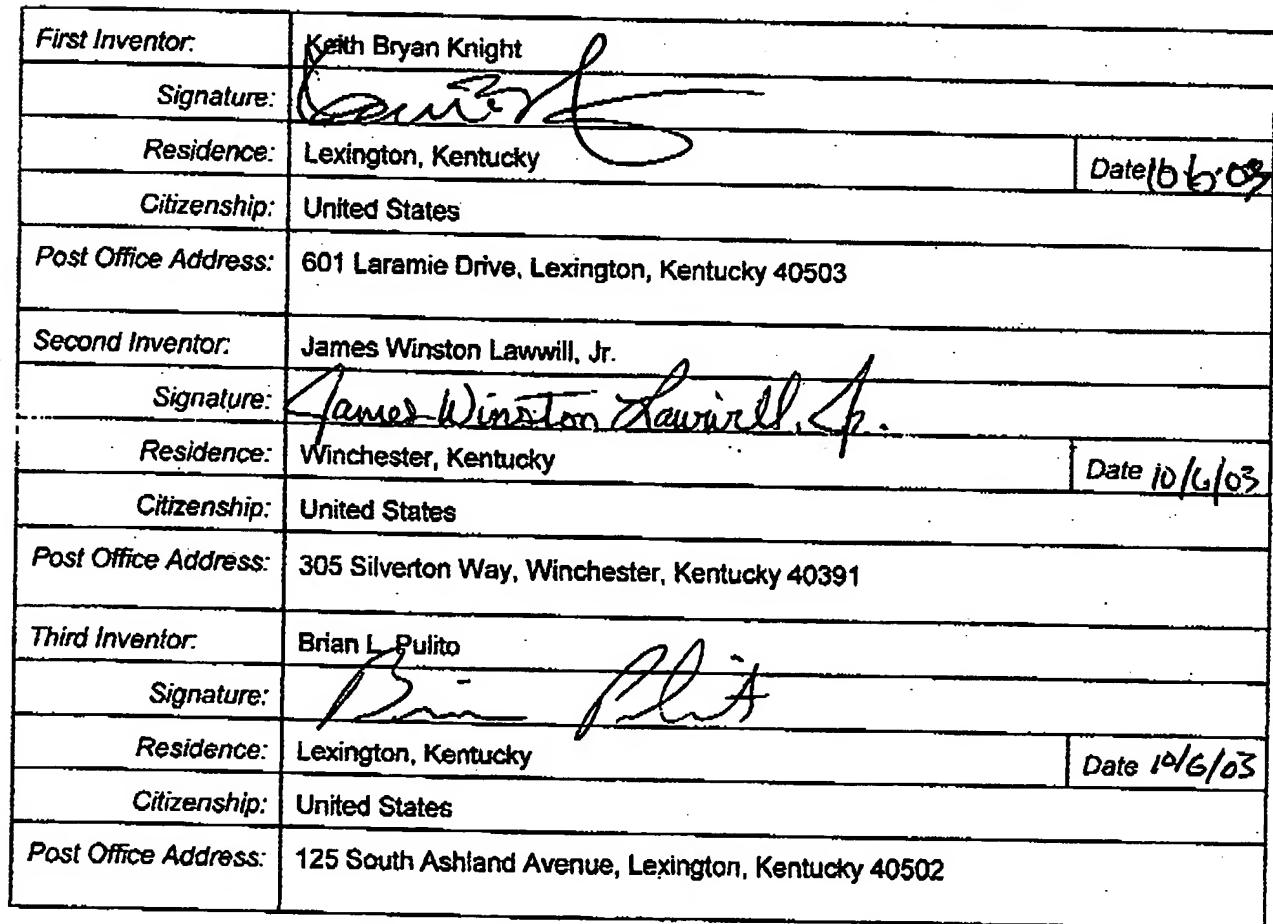 First Inventor: Keith Bryan Knight
Signature:
Residence: Lexington, Kentucky Date 10·6·03
Citizenship: United States
Post Office Address: 601 Laramie Drive, Lexington, Kentucky 40503
Second Inventor: James Winston Lawwill, Jr.
Signature: James Winston Lawwill, Jr.
Residence: Winchester, Kentucky Date 10/6/03
Citizenship: United States
Post Office Address: 305 Silverton Way, Winchester, Kentucky 40391
Third Inventor: Brian L. Pulito
Signature: Brian Pulito
Residence: Lexington, Kentucky Date 10/6/03
Citizenship: United States
Post Office Address: 125 South Ashland Avenue, Lexington, Kentucky 40502